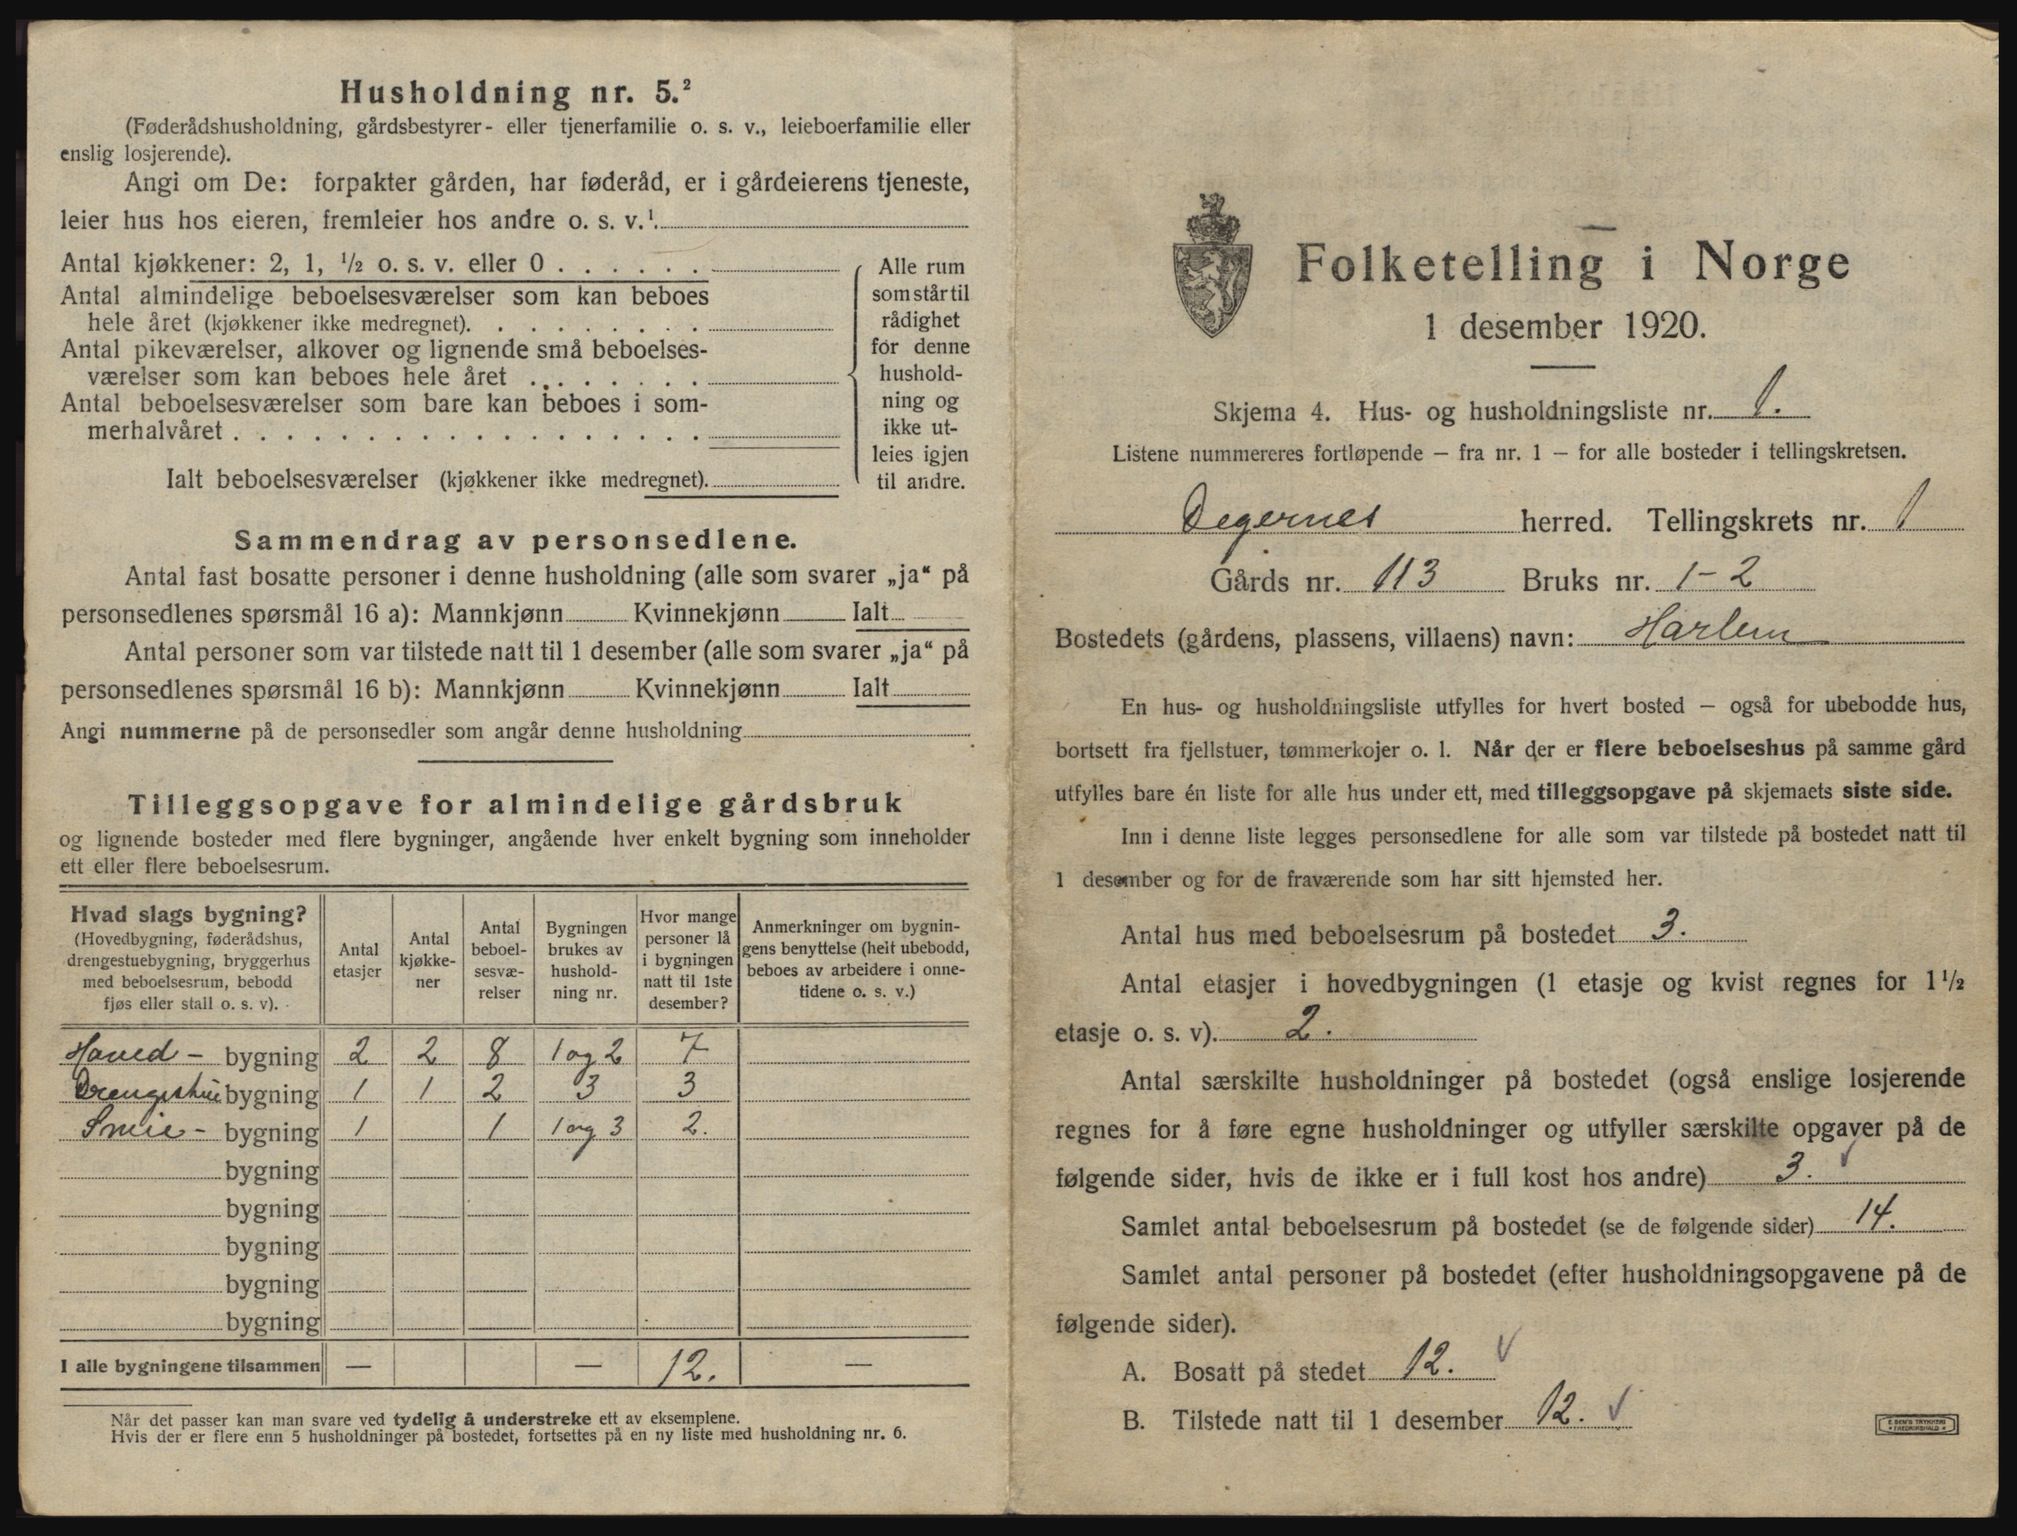 Husholdning nr. 5.²
(Føderådshusholdning, gårdsbestyrer- eller tjenerfamilie o. s. v., leieboerfamilie eller
enslig losjerende).
Angi om De: forpakter gården, har føderåd, er i gårdeierens tjeneste,
leier hus hos eieren, fremleier hos andre o. s. v.¹.
Antal kjøkkener: 2, 1, ½ o. s. v. eller 0 . . . . . .
Antal almindelige beboelsesværelser som kan beboes
hele året (kjøkkener ikke medregnet). . . . . . . . .
Antal pikeværelser, alkover og lignende små beboelses-
værelser som kan beboes hele året . . . . . . .
Antal beboelsesværelser som bare kan beboes i som-
merhalvåret . . . . . . . . . . . . . . . . . .
Ialt beboelsesværelser (kjøkkener ikke medregnet).
Alle rum
som står til
rådighet
for denne
hushold-
ning og
ikke ut-
leies igjen
til andre.
Sammendrag av personsedlene.
Antal fast bosatte personer i denne husholdning (alle som svarer „ja“ på
personsedlenes spørsmål 16 a): Mannkjønn Kvinnekjønn Ialt
Antal personer som var tilstede natt til 1 desember (alle som svarer „ja“ på
personsedlenes spørsmål 16 b): Mannkjønn Kvinnekjønn Ialt
Angi nummerne på de personsedler som angår denne husholdning
Tilleggsopgave for almindelige gårdsbruk
og lignende bosteder med flere bygninger, angående hver enkelt bygning som inneholder
ett eller flere beboelsesrum.
Hvad slags bygning?
(Hovedbygning, føderådshus,
drengestuebygning, bryggerhus
med beboelsesrum, bebodd
fjøs eller stall o. s. v).
Antal
etasjer
Antal
kjøkke-
ner
Antal
beboel-
sesvæ-
relser
Bygningen
brukes av
hushold-
ning nr.
Hvor mange
personer lå
i bygningen
natt til 1ste
desember?
Anmerkninger om bygnin-
gens benyttelse (helt ubebodd,
beboes av arbeidere i onne-
tidene o. s. v.)
Hoved- bygning 2 2 8 1 og 2 7
Drengestue bygning 1 1 2 3 3
Smie- bygning 1 1 1 og 3 2.
bygning
bygning
bygning
bygning
bygning
I alle bygningene tilsammen — — 12. —
Når det passer kan man svare ved tydelig å understreke ett av eksemplene.
Hvis der er flere enn 5 husholdninger på bostedet, fortsettes på en ny liste med husholdning nr. 6.
Folketelling i Norge
1 desember 1920.
Skjema 4. Hus- og husholdningsliste nr. 1.
Listene nummereres fortløpende – fra nr. 1 – for alle bosteder i tellingskretsen.
Degernes herred. Tellingskrets nr. 1
Gårds nr. 113 Bruks nr. 1-2
Bostedets (gårdens, plassens, villaens) navn: Harlem
En hus- og husholdningsliste utfylles for hvert bosted – også for ubebodde hus,
bortsett fra fjellstuer, tømmerkojer o. l. Når der er flere beboelseshus på samme gård
utfylles bare én liste for alle hus under ett, med tilleggsopgave på skjemaets siste side.
Inn i denne liste legges personsedlene for alle som var tilstede på bostedet natt til
1 desember og for de fraværende som har sitt hjemsted her.
Antal hus med beboelsesrum på bostedet 3.
Antal etasjer i hovedbygningen (1 etasje og kvist regnes for 1½
etasje o. s. v). 2.
Antal særskilte husholdninger på bostedet (også enslige losjerende
regnes for å føre egne husholdninger og utfyller særskilte opgaver på de
følgende sider, hvis de ikke er i full kost hos andre) 3.
Samlet antal beboelsesrum på bostedet (se de følgende sider) 14.
Samlet antal personer på bostedet (efter husholdningsopgavene på de
følgende sider).
A. Bosatt på stedet 12.
B. Tilstede natt til 1 desember 12.